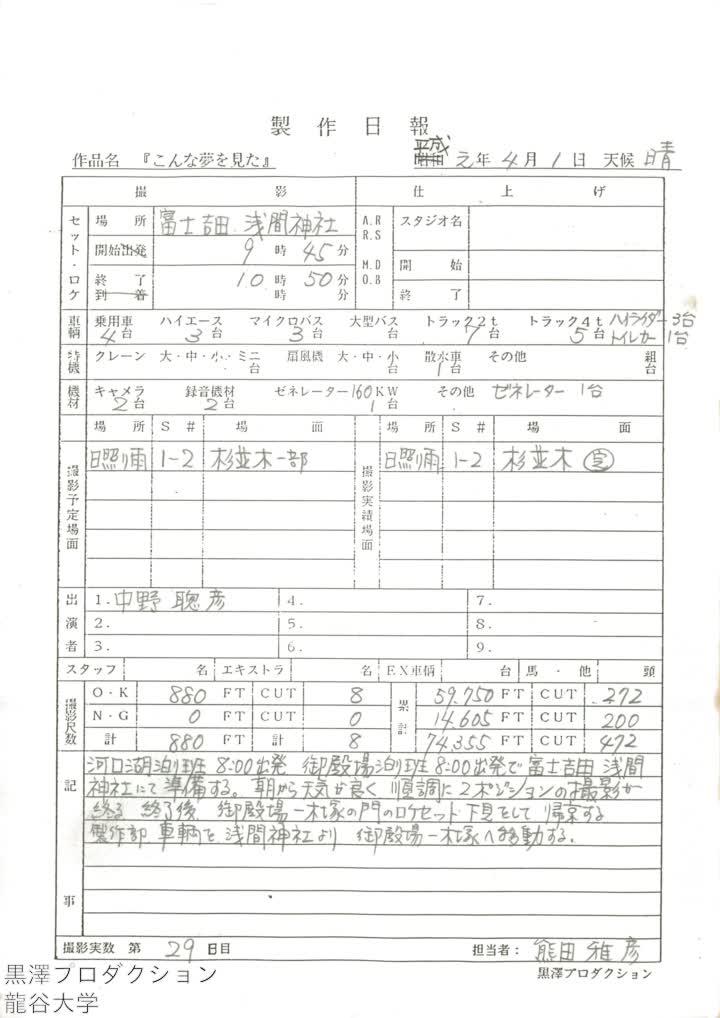 製作日報
作品名 『こんな夢を見た』 平成元年4月1日 天候 晴
撮影 仕上げ
セット・ロケ 場所 富士吉田 浅間神社 A.R R.S スタジオ名
開始出発 9時45分 M.D O.B 開始
終了 10時50分 終了
到着 時 分
車輌 乗用車 4台 ハイエース 3台 マイクロバス 3台 大型バス 台 トラック2t 7台 トラック4t 5台 ハイライダー3台
トイレカー1台
特機 クレーン 大・中・小・ミニ 台 扇風機 大・中・小 台 散水車 1台 その他 組 台
機材 キャメラ 2台 録音機材 2台 ゼネレーター160KW 1台 その他 ゼネレーター 1台
場所 S# 場面 場所 S# 場面
撮影予定場面 日照り雨 1-2 杉並木一部 撮影実績場面 日照り雨 1-2 杉並木 完
出演者 1. 中野聡彦 4. 7.
2. 5. 8.
3. 6. 9.
スタッフ 名 エキストラ 名 EX車輌 台 馬・他 頭
撮影尺数 O・K 880 FT CUT 8 累計 59.750 FT CUT 272
N・G 0 FT CUT 0 14.605 FT CUT 200
計 880 FT 計 8 74.355 FT CUT 472
記事 河口湖泊班 8:00出発 御殿場泊班 8:00出発で富士吉田 浅間
神社にて準備する。朝から天気が良く 順調に2ポジションの撮影が
終る 終了後 御殿場一木塚の門のロケセット下見をして 帰京する
製作部 車輌を浅間神社より 御殿場一木塚へ移動する。
撮影実数 第29日目 担当者: 熊田雅彦
黒澤プロダクション
黒澤プロダクション
龍谷大学